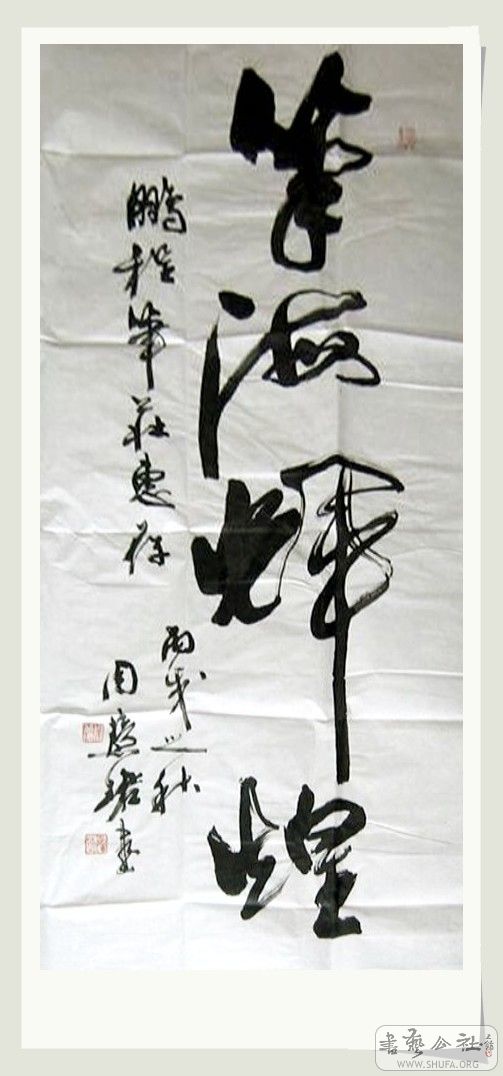 笔海辉煌
鹏程笔庄惠存
丙戌之秋
周慧珺书
書藝公社
WWW.SHUFA.ORG